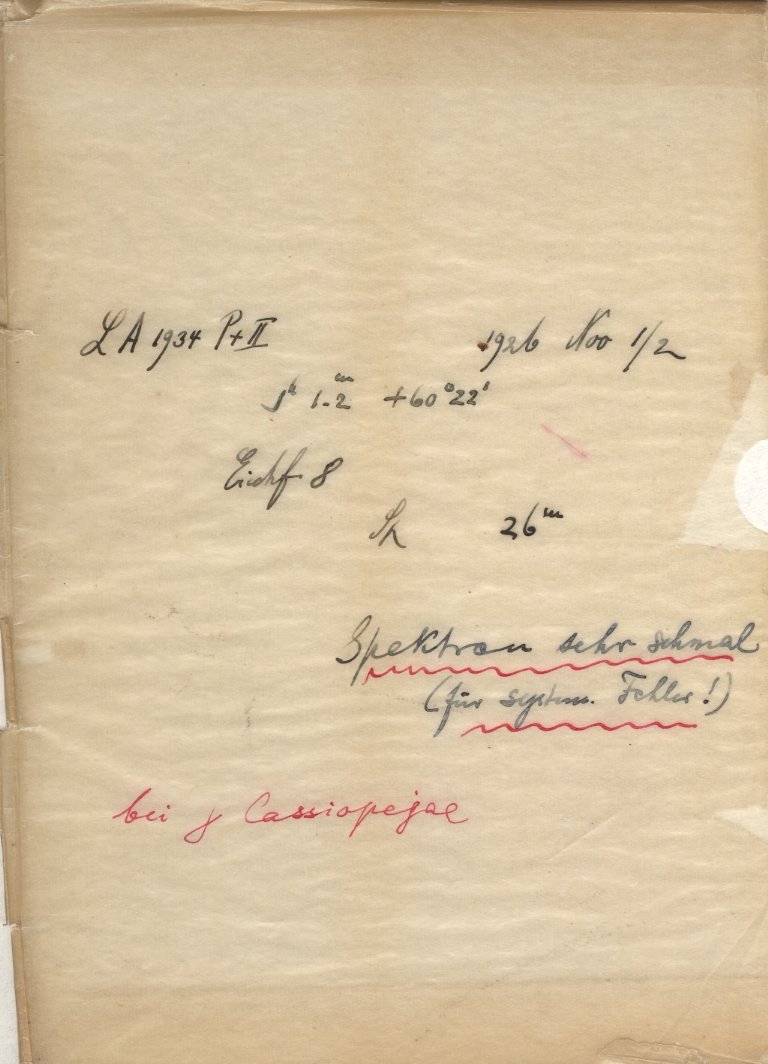 LA 1934 P+II 1926 Nov 1/2
1ʰ 1.2ᵐ +60°22'
Eichf 8
26ᵐ
Spektren sehr schmal
(für system. Fehler!)
bei γ Cassiopejae